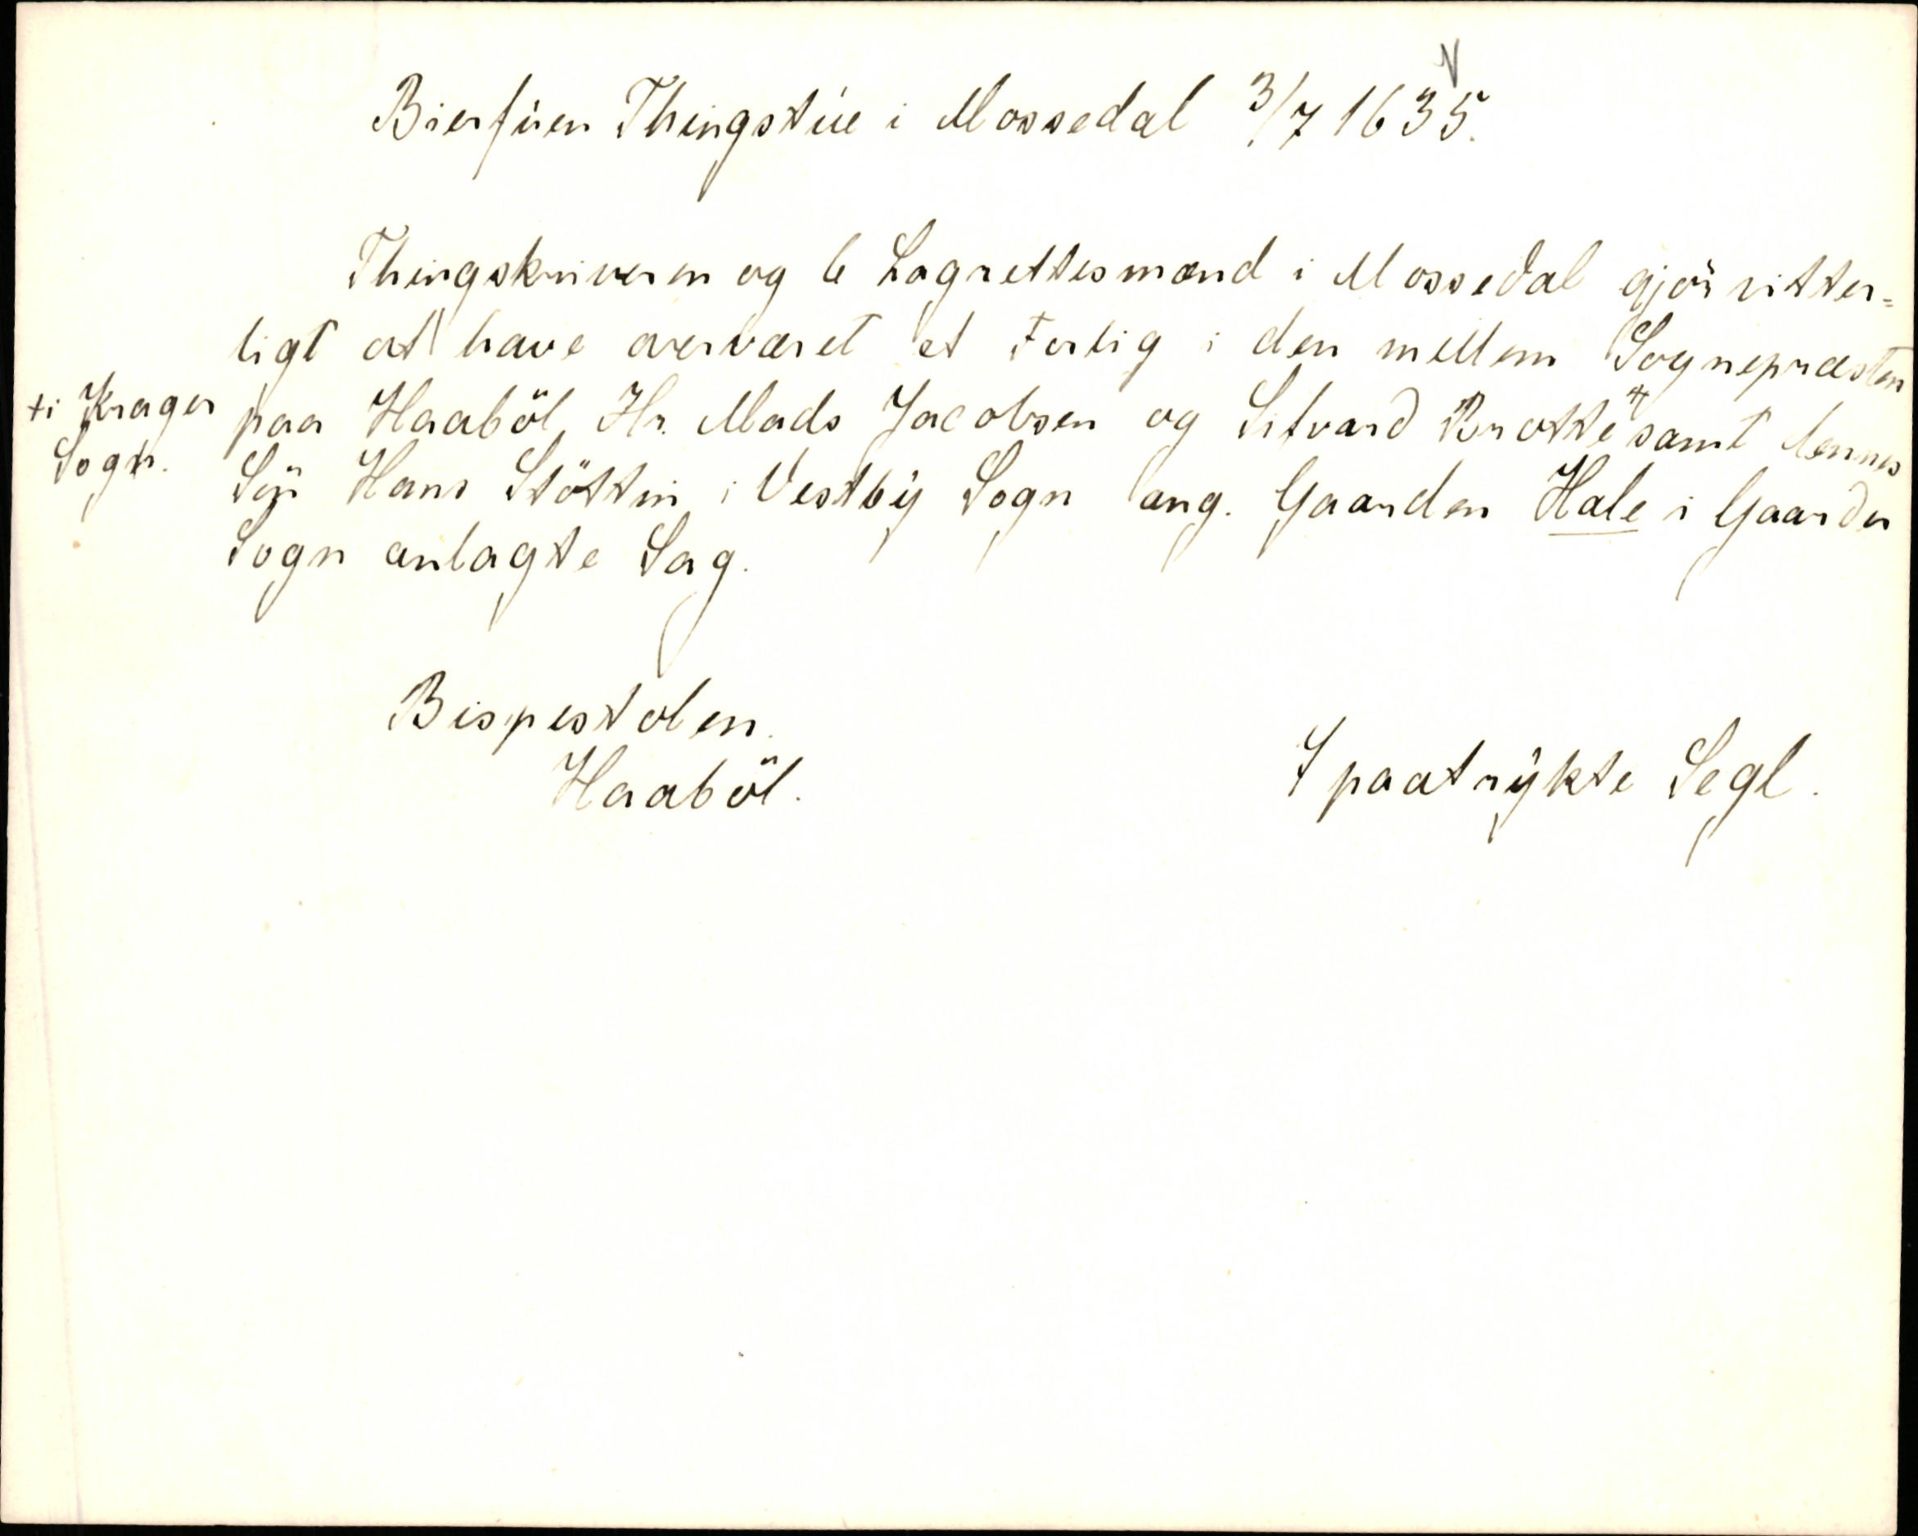 Bierfüen Thingstüe i Mossedal 3/7 1635.
Thingskriveren og 6 Lagrettesmænd i Mossedal gjör vitter=
ligt at have overværet et Forlig i den mellem Sognepræsten
paa Haaböl, Hr. Mads Jacobsen og Sifvard Brotte + samt dennes
+ i Krager
Sogn.
Sön Hans Stöttin i Vestby Sogn ang. Gaarden Hale i Gaarder
Sogn anlagte Sag.
Bispestolen.
Haaböl.
7 paatrykte Segl.